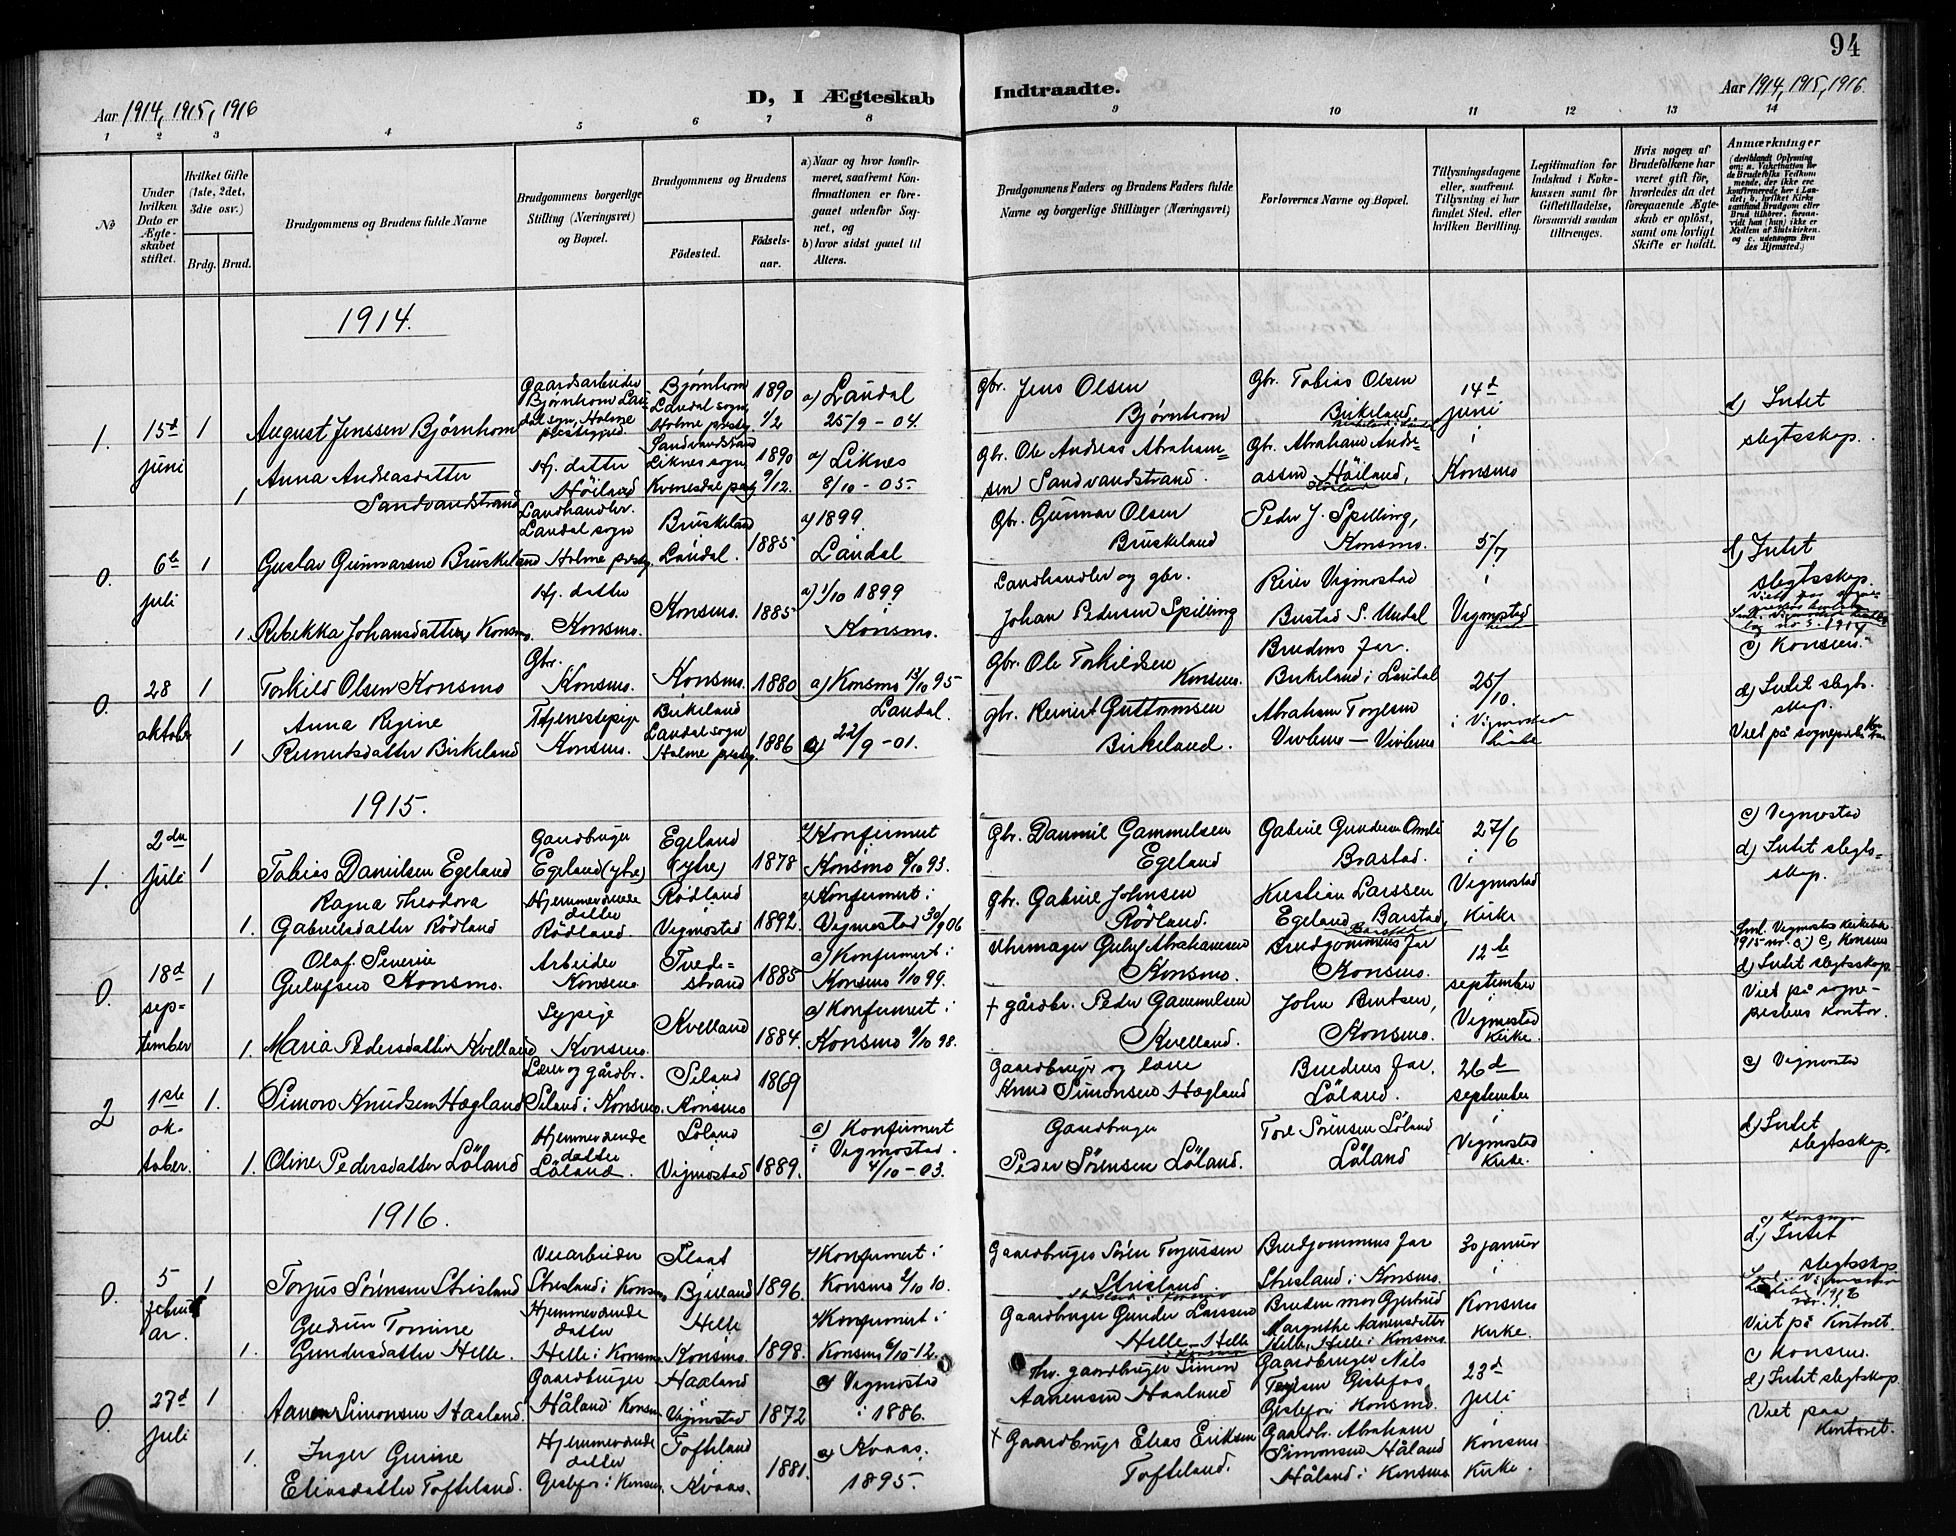 94
Aar 1914, 1915, 1916
D, I Ægteskab Indtraadte.
Aar 1914, 1915, 1916.
1 2 3 4 5 6 7 8 9 10 11 12 13 14
№
Under hvilken Dato er Ægteskabet stiftet.
Hvilket Gifte (1ste, 2det, 3die osv.)
Brdg. Brud.
Brudgommens og Brudens fulde Navne
Brudgommens borgerlige Stilling (Næringsvei) og Bopæl.
Brudgommens og Brudens
Fødested.
Fødselsaar.
a) Naar og hvor konfirmeret, saafremt Konfirmationen er foregaaet udenfor Sognet, og
b) hvor sidst gaaet til Alters.
Brudgommens Faders og Brudens Faders fulde Navne og borgerlige Stillinger (Næringsvei)
Forlovernes Navne og Bopæl.
Tillysningsdagene eller, saafremt Tillysning ei har fundet Sted, efter hvilken Bevilling.
Legitimation for Indskud i Enkekassen samt for Giftetilladelse, forsaavidt saadan tiltrænges.
Hvis nogen af Brudefolkene har været gift før, hvorledes da det foregaaende Ægteskab er opløst, samt om lovligt Skifte er holdt.
Anmærkninger
(deriblandt Oplysning om: a. Vakcination for de Brudefolks Vedkommende, der ikke ere konfirmerede her i Landet; b. hvilket Kirkesamfund Brudgom eller Brud tilhører, forsaavidt han (hun) ikke er Medlem af Statskirken, og c. udensogns Brudes Hjemsted.)
1914.
1. 15d juni 1 August Jenssen Bjørnhom
Gaardsarbeider Bjørnhom Laudal sogn, Holme prestegjeld
Bjørnhom Laudal sogn, Holme prstg.
1890 1/2
a) Laudal 25/9 - 04.
Gbr. Jens Olsen Bjørnhom
Gbr. Tobias Olsen Birkeland.
14d juni i Konsmo
d) Intet slegtsskap.
1 Anna Andreasdatter Sandvandstrand
Hj. datter Höiland
Sandvandstrand Liknes sogn, Kvinesdal prstg.
1890 9/12.
a) Liknes 8/10 - 05.
Gbr. Ole Andreas Abrahamsen Sandvandstrand.
Gbr. Abraham Andreassen Höiland,
0. 6te juli 1 Gustav Gunnarsen Bruskeland
Landhandler. Laudal sogn Holme prstg.
Bruskeland Laudal.
1885
a) 1899 Laudal
Gbr. Gunnar Olsen Bruskeland
Peder J. Spilling, Konsmo.
5/7 i Vigmostad kirke
d) Intet slegtsskap.
1. Rebekka Johansdatter Konsmo.
Hj. datter Konsmo.
Konsmo. 1885
a) 1/10 1899 Konsmo.
Landhandler og gbr. Johan Pedersen Spilling
Reier Vigmostad Bustad S. Undal
0. 28 oktober 1 Torkild Olsen Konsmo
Gbr. Konsmo.
Konsmo. 1880
a) Konsmo 13/10 95
Gbr. Ole Torkildsen Konsmo.
Brudens far. Birkeland i Laudal
25/10. i Vigmostad kirke
c) Konsmo.
d) Intet slegtsskap.
1 Anna Regine Reinertsdatter Birkeland
Tjenestepige Konsmo.
Birkeland Laudal sogn Holme prstg.
1886
Laudal. a) 22/9 - 01.
Gbr. Reinert Guttormsen Birkeland.
Abraham Torjesen Vivlemo - Vivlemo
Viet på sogneprestens kontor
1915.
1. 2den juli 1 Tobias Danielsen Egeland
Gaardbruger Egeland (ytre)
Egeland (ytre) 1878
a) Konfirmert Konsmo 8/10 93.
Gbr. Daniel Gammelsen Egeland
Gabriel Gundersen Omli Brastad.
27/6 i Vigmostad Kirke
c) Vigmostad
d) Intet slegtsskap.
1. Ragna Theodora Gabrielsdatter Rödland
Hjemmeværende datter Rödland.
Rödland Vigmostad 1892.
a) Konfirmert i Vigmostad 30/9 06
Gbr. Gabriel Johnsen Rödland.
Kristian Larssen Egeland, Barstad,
0. 18d september 1 Olaf Severin Gulufsen Konsmo.
Arbeider Konsmo
Tvedestrand 1885
a) Konfirmert i Konsmo 1/10 99.
Uhrmager Guluf Abrahamsen Konsmo.
Brudgommens far Konsmo.
12te september i Vigmostad Kirke.
Sml. Vigmostad kirkebok 1915 nr. c) Konsmo
d) Intet slegtsskap.
Viet på sogneprestens kontor.
1. Maria Pedersdatter Kvelland
Sypige Konsmo.
Kvelland 1884.
a) Konfirmert i Konsmo 9/10 98.
+ gårdbr. Peder Gammelsen Kvelland.
John Berntsen, Konsmo.
2 1ste oktober. 1. Simon Knudsen Hægland
Lærer og gårdbr. Seland i Konsmo
Seland Konsmo 1869
Gaardbruger og lærer Knud Simonsen Hægland
Brudens far, Löland.
26d september i Vigmostad Kirke.
c) Vigmostad
d) Intet slegtsskap.
1. Oline Pedersdatter Löland
Hjemmeværende datter Löland.
Löland Vigmostad 1889.
a) Konfirmert i Vigmostad. 4/10 - 03.
Gaardbruger Peder Sörensen Löland.
Tore Sörensen Löland Löland
1916.
0. 5 februar. 1 Torjus Sörensen Strisland
Veiarbeider Strisland i Konsmo
Flaat Bjelland 1896
a) Konfirmert i Konsmo 2/10 10.
Gaardbruger Sören Torjussen Strisland
Brudgommens far Strisland i Konsmo.
30 januar i Konsmo Kirke.
c) Konsmo
d) Intet slegtsskap
Viet på Kontoret.
1. Gudrun Tomine Gundersdatter Helle.
Hjemmeværende datter Helle i Konsmo
Helle Konsmo. 1898.
a) Konfirmert i Konsmo 6/10-12.
Gaardbruger Gunder Larssen Helle
Brudens mor Gjertrud Margrethe Aanensdatter Helle, Helle i Konsmo.
0. 27d juli 1 Aanen Simonsen Haaland
Gaardbruger Håland i Konsmo
Haaland Vigmostad 1872
a) Vigmostad i 1886.
Fhv. gaardbruger Simon Aanensen Haaland
Gaardbruger Nils Terjesen Gislefos Gislefos i Konsmo.
23d juli i Konsmo Kirke.
c) Konsmo.
d) Intet slegtsskap.
Viet paa Kontoret.
1. Inger Gurine Eliasdatter Tofteland.
Hjemmeværende datter Gislefos i Konsmo
Tofteland Kvaas. 1881.
a) Kvaas. 1895.
+ Gaardbruger Elias Eriksen Tofteland.
Gaardbr. Abraham Simonsen Håland Håland i Konsmo